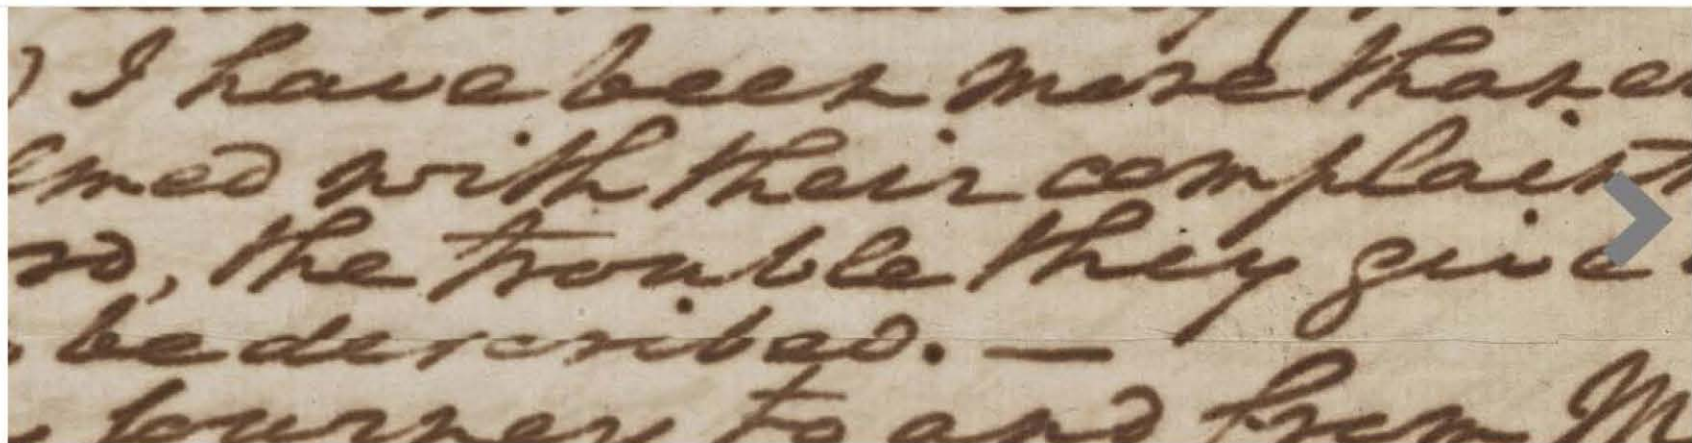 I have been more than
med with their complaint
, the trouble they give
be described. —
journey to and from M